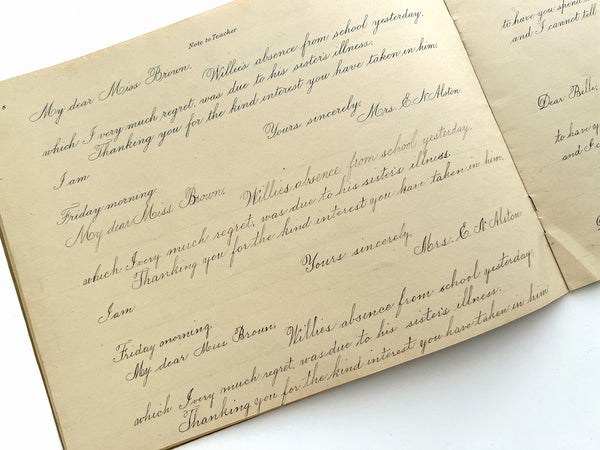 Note to Teacher
8
My dear Miss Brown. Willie's absence from school yesterday.
which I very much regret, was due to his sister's illness.
Thanking you for the kind interest you have taken in him,
I am
Yours sincerely,
Mrs. E. N. Alston.
Friday morning.
My dear Miss Brown, Willie's absence from school yesterday.
which I very much regret, was due to his sister's illness.
Thanking you for the kind interest you have taken in him
I am
Yours sincerely,
Mrs. E. N. Alston.
Friday morning
My dear Miss Brown, Willie's absence from school yesterday,
which I very much regret, was due to his sister's illness.
Thanking you for the kind interest you have taken in him
to have you spend
and I cannot tell
Dear Belle,
to have yo
and I ca